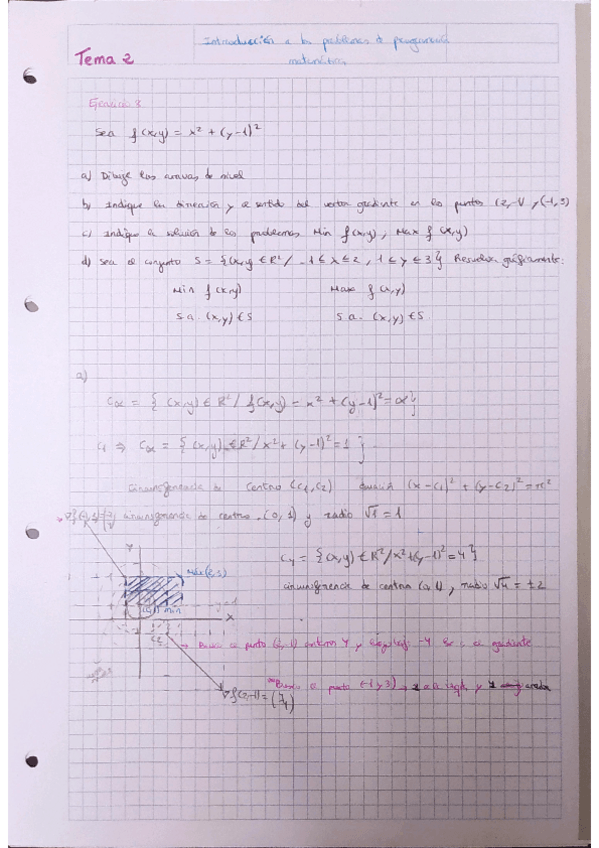 Introducción a los problemas de programación
matemática
Tema 2
Ejercicio 3
Sea f(x,y) = x² + (y-1)²
a) Dibuje las curvas de nivel
b) Indique la dirección y el sentido del vector gradiente en los puntos (2,-1) y (-1,3)
c) Indique la solución de los problemas Min f(x,y) ; Max f(x,y)
d) Sea el conjunto S = {(x,y) ∈ R² / -1 ≤ x ≤ 2, 1 ≤ y ≤ 3} Resuelva gráficamente:
Min f(x,y) Max f(x,y)
s.a. (x,y) ∈ S s.a. (x,y) ∈ S
a)
Cα = { (x,y) ∈ R² / f(x,y) = x² + (y-1)² = α }
C1 ⇒ Cα = { (x,y) ∈ R² / x² + (y-1)² = 1 }
Circunferencia de centro (C1, C2) (x-C1)² + (y-C2)² = r²
circunferencia de centro (0,1) y radio √1 = 1
C4 = { (x,y) ∈ R² / x² + (y-1)² = 4 }
circunferencia de centro (0,1), radio √4 = ±2
y
Max (2,3)
min
x
C2
→ Busco el punto (2,-1) y -4 el gradiente
Busco el punto (-1,3) →
∇f(2,-1) =